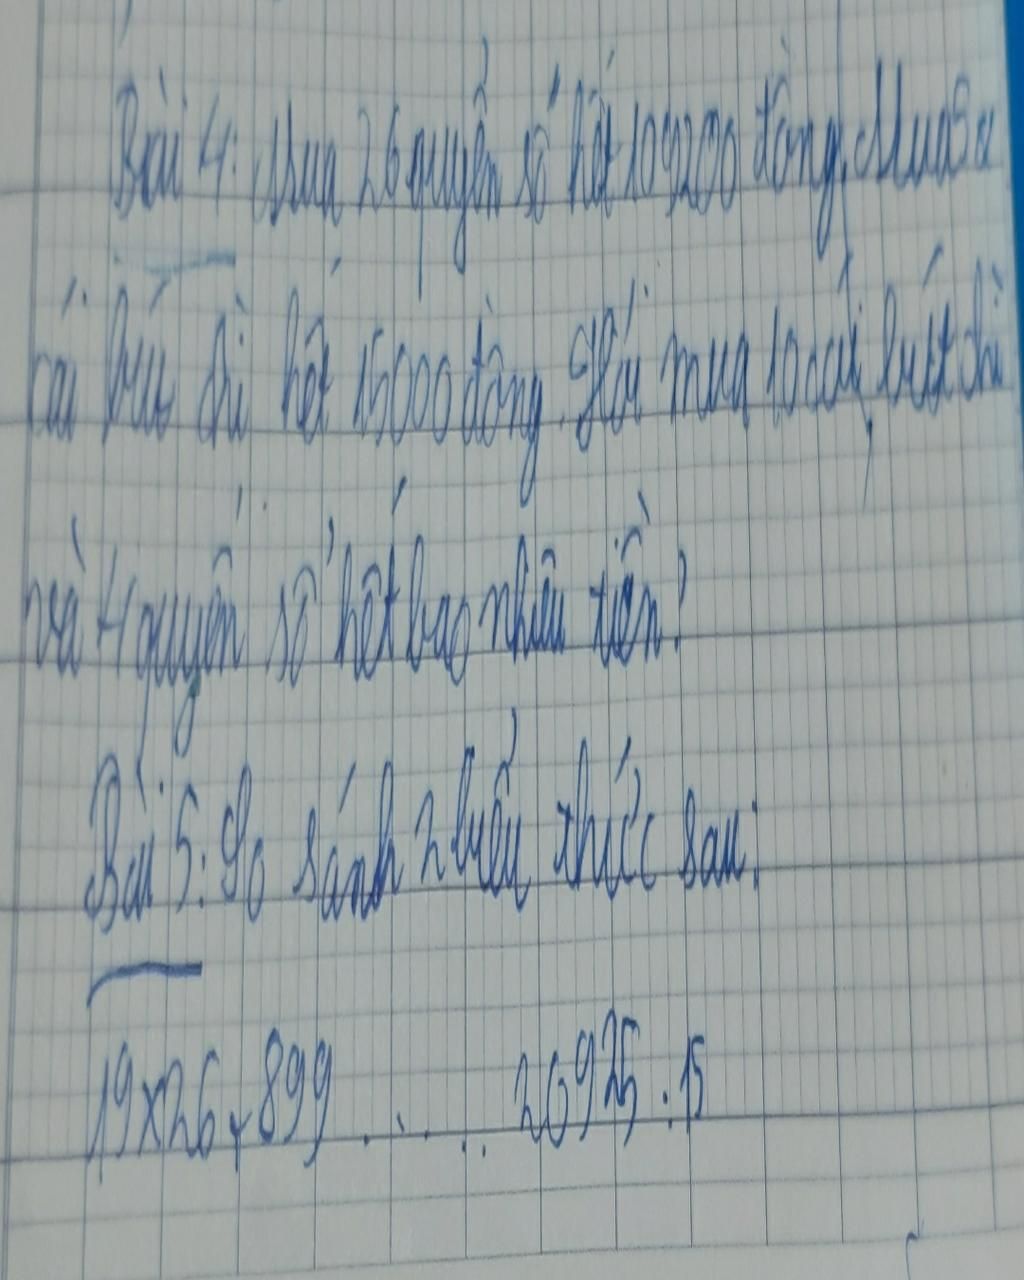 Bài 4: Mua 26 quyển sổ hết 109200 đồng. Mua 3
cái bút chì hết 15000 đồng. Hỏi mua 10 cái bút chì
và 4 quyển sổ hết bao nhiêu tiền?
Bài 5: So sánh 2 biểu thức sau:
19 x 26 + 899 ..... 20925 : 15